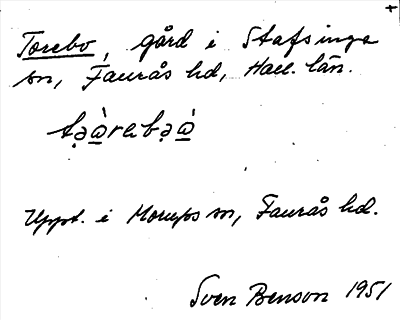 Torebo, gård i Stafsinge
sn, Faurås hd, Hall. län.
tə̣ὰ̱rebə̣ὰ̱
Uppt. i Morups sn, Faurås hd.
Sven Benson 1951